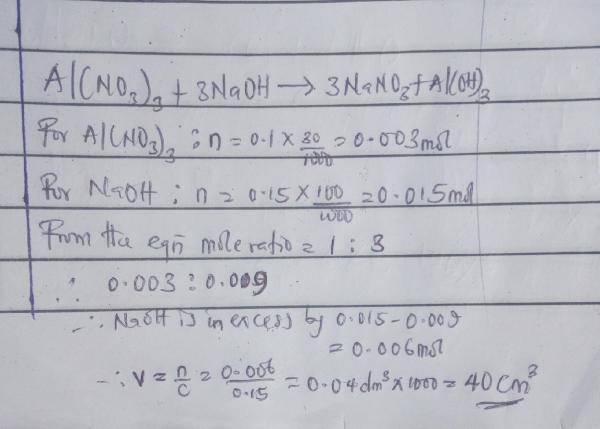 Al(NO₃)₃ + 3NaOH → 3NaNO₃ + Al(OH)₃
For Al(NO₃)₃ : n = 0.1 × 30/1000 = 0.003mol
For NaOH : n = 0.15 × 100/1000 = 0.015mol
From the eqn mole ratio = 1 : 3
∴ 0.003 : 0.009
∴ NaOH is in excess by 0.015 - 0.009
= 0.006mol
∴ V = n/c = 0.006/0.15 = 0.04dm³ × 1000 = 40cm³